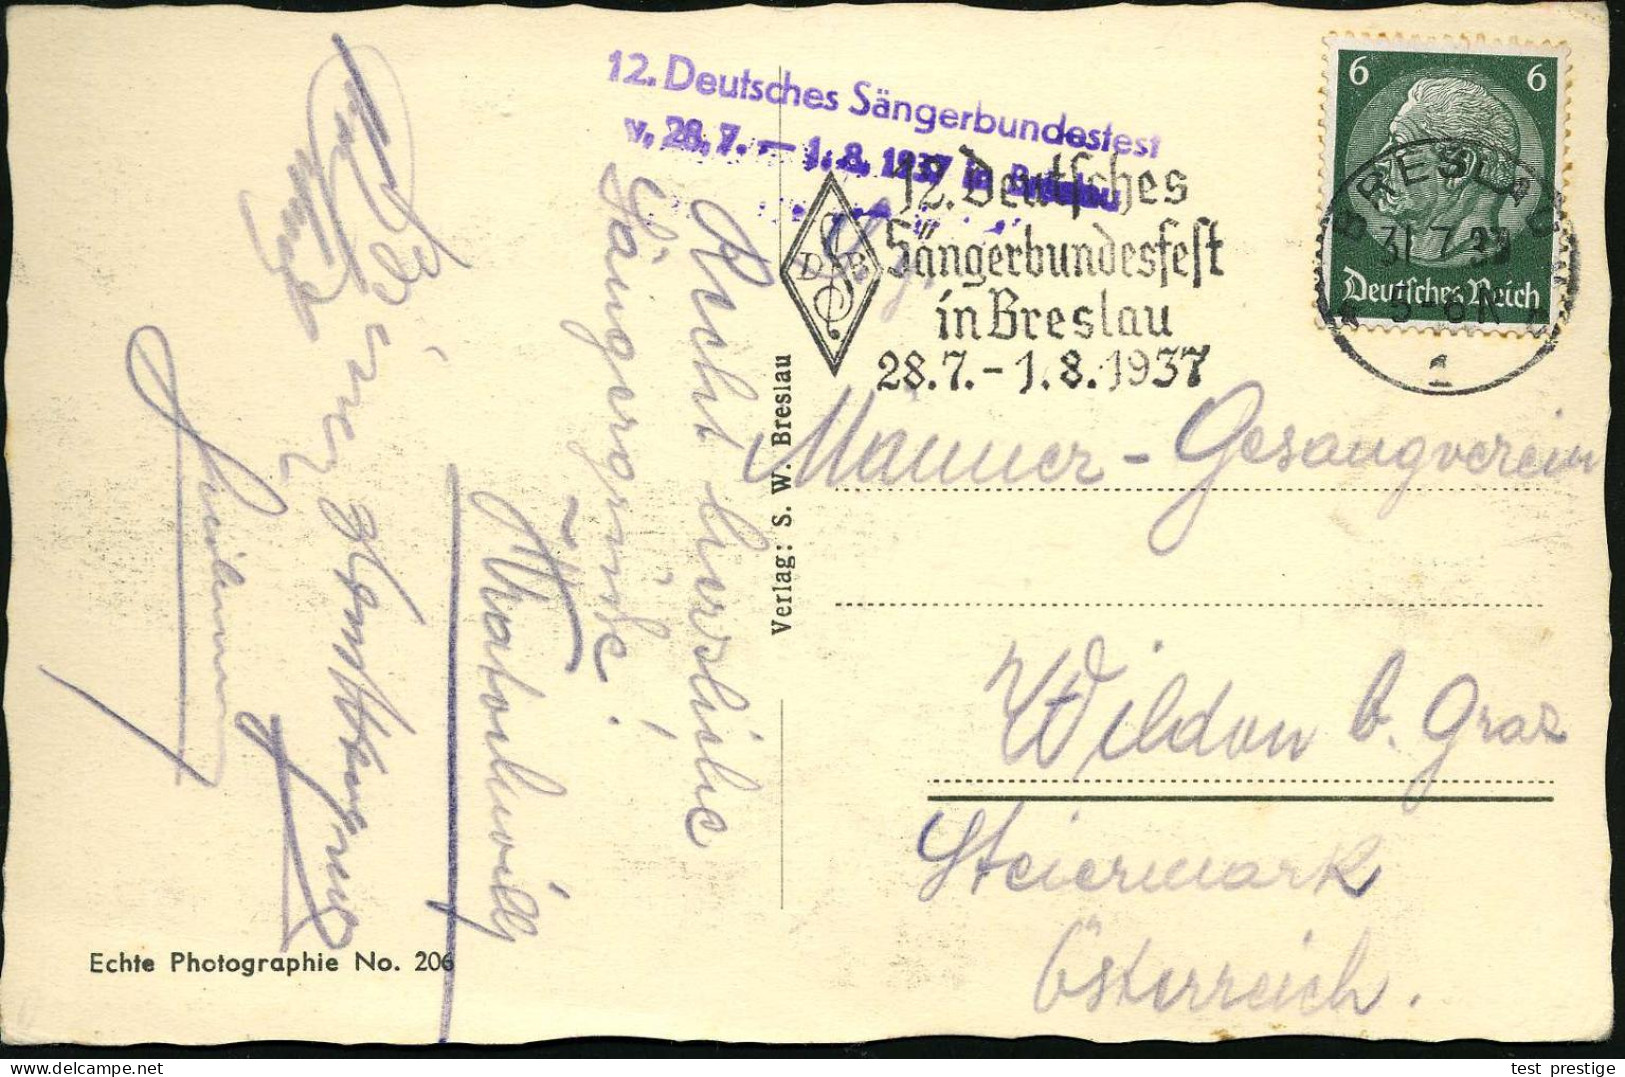 12. Deutsches Sängerbundesfest
v. 28. 7. – 1. 8. 1937 in Breslau
12. Deutsches
Sängerbundesfest
in Breslau
28.7. – 1.8.1937
D S B
6 6
Deutsches Reich
BRESLAU
31.7.37
5-6 N
1
Recht herzliche
Sängergrüße!
Verlag: S. W. Breslau
Männer-Gesangverein
Wildon b. Graz
Steiermark
Österreich.
Echte Photographie No. 206
test prestige